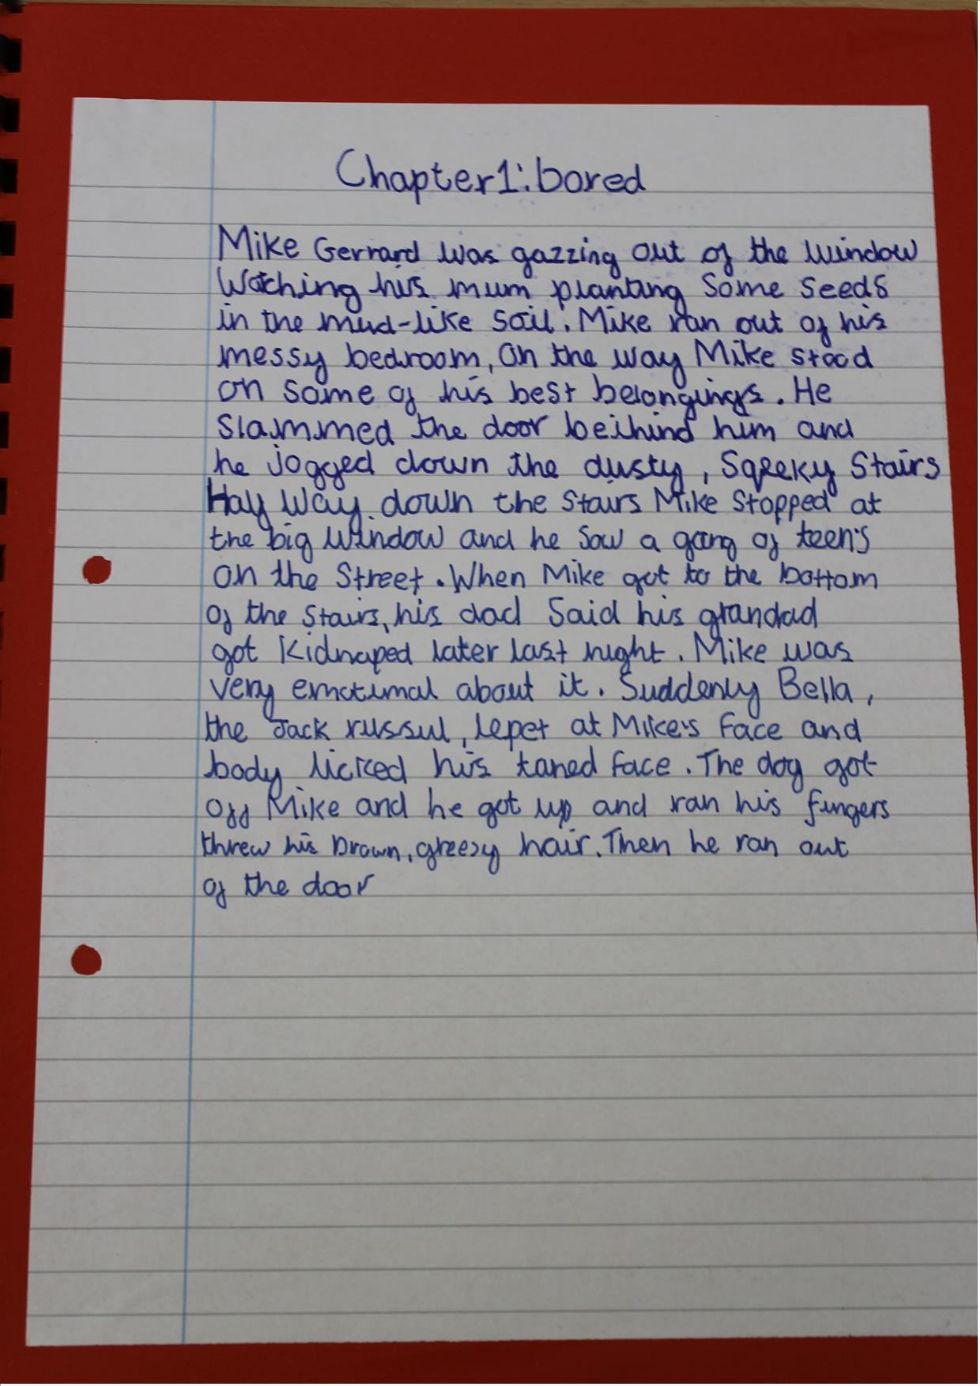 Chapter1:bored
Mike Gerrard was gazzing out of the window
Watching his mum planting Some Seeds
in the mud-like Soil. Mike ran out of his
messy bedroom, On the way Mike stood
on some of his best belongings. He
Slammed the door beihind him and
he jogged down the dusty, Sqeeky Stairs
Half Way down the Stairs Mike Stopped at
the big window and he Saw a gang of teen's
on the Street. When Mike got to the bottom
of the Stairs, his dad Said his grandad
got Kidnaped later last night. Mike was
very emotimal about it. Suddenly Bella,
the Jack russul, lepet at Mike's Face and
body licked his taned face. The dog got
off Mike and he got up and ran his fingers
threw his brown, greesy hair. Then he ran out
of the door